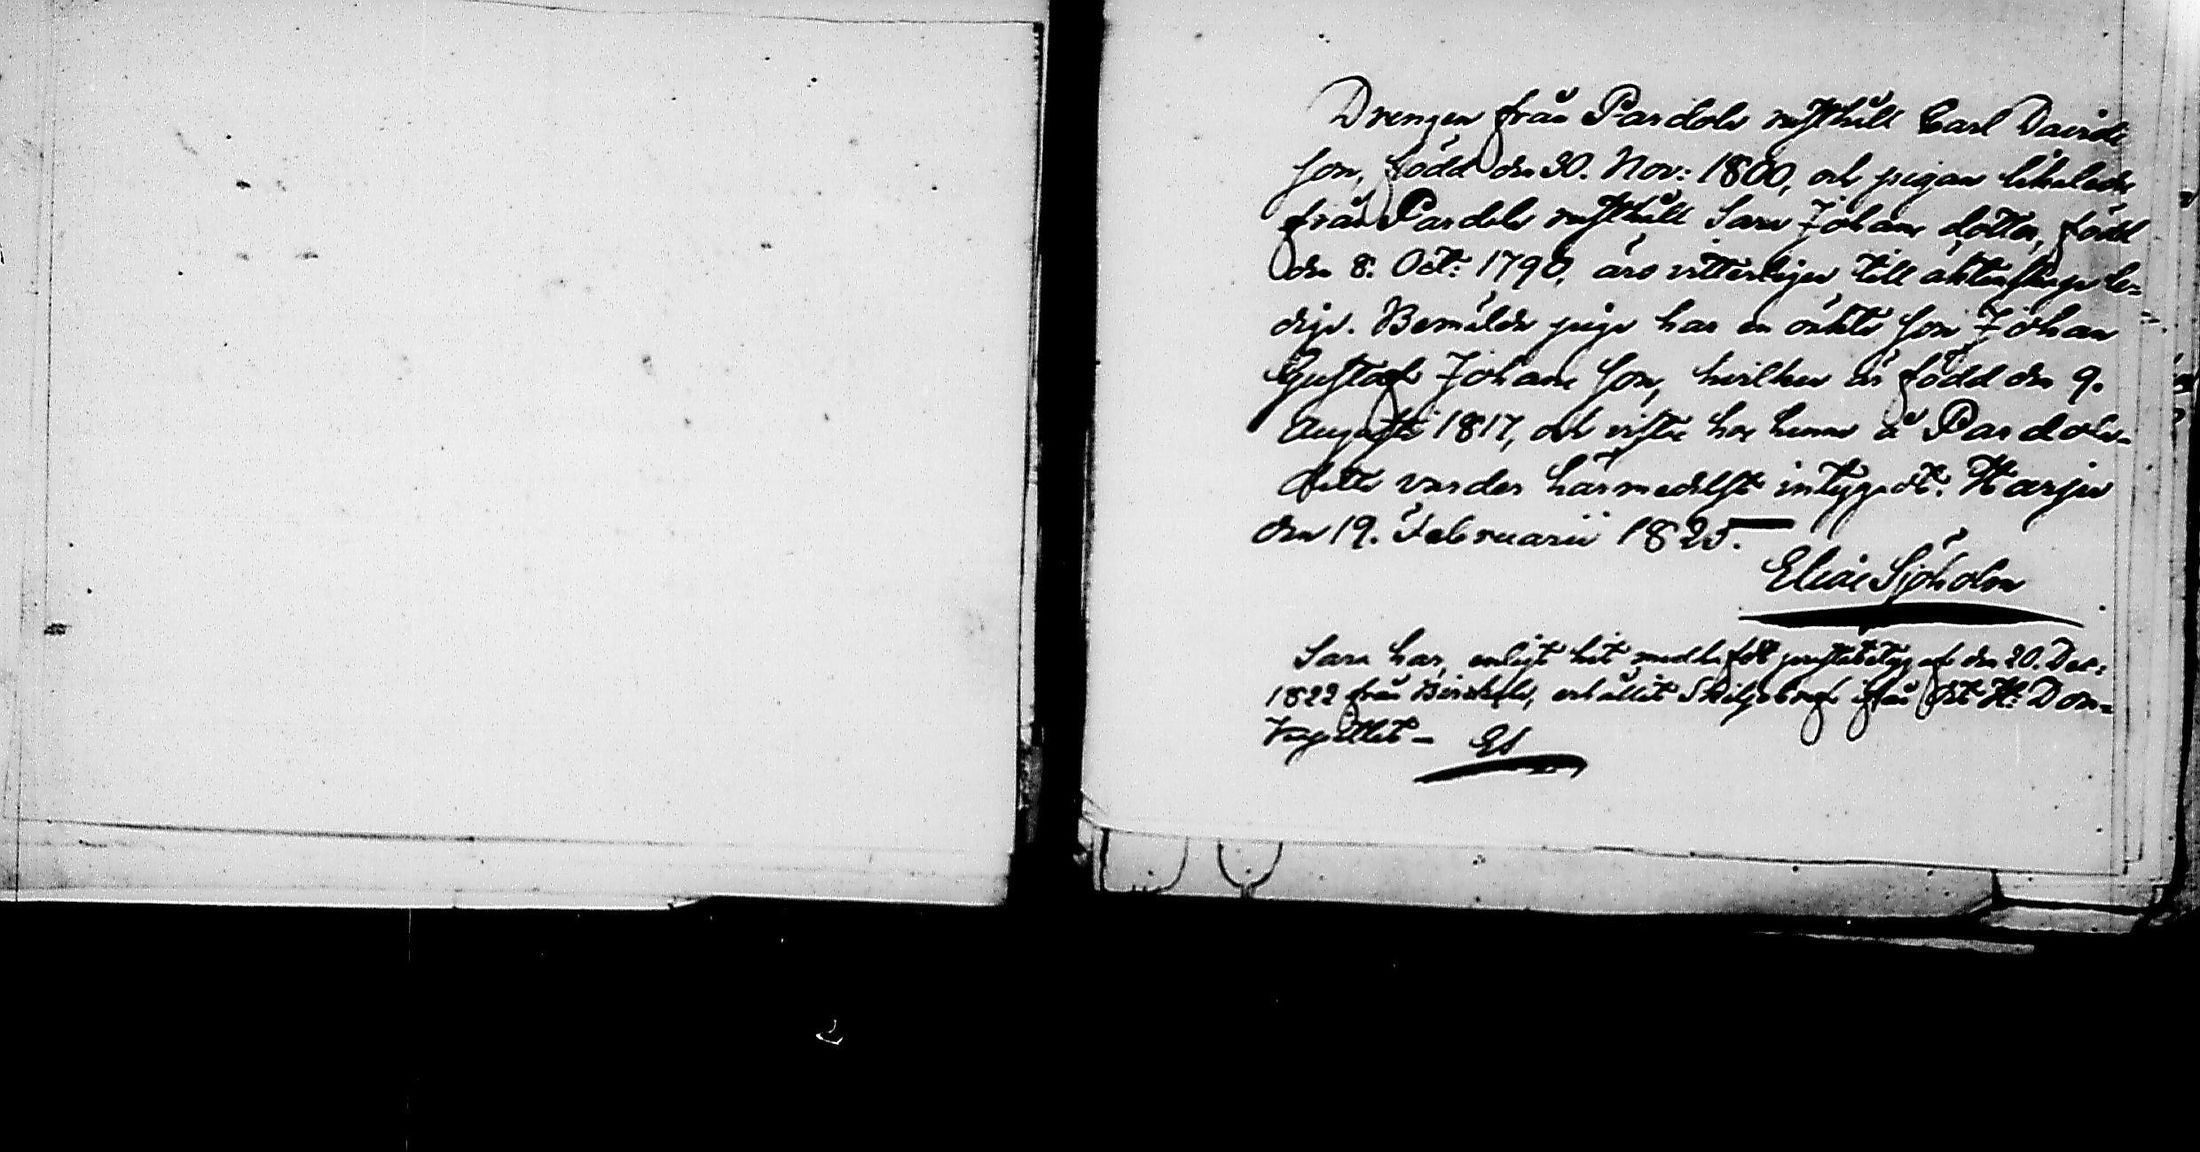 Drengen från Pardola rusthåll Carl Davids
son, född den 30. Nov: 1800, och pigan likaledes
från Pardola rusthåll Sara Johans dotter, född
den 8. Oct: 1790, äro vitterligen till äktenskap le=
diga. Bemälde piga har en oäkta son Johan
Gustaf Johans son, hvilken är född den 9.
Augusti 1817, och vistas hos henne å Pardola.
Detta varder härmedelst intygadt. Harju
den 19. Februarii 1825.
Elias Sjöholm
Sara har, enligt hit medhafdt prestbetyg af den 20. Dec:
1822 från Birkala, erhållit Skiljobref ifrån
Kapitlet – ES